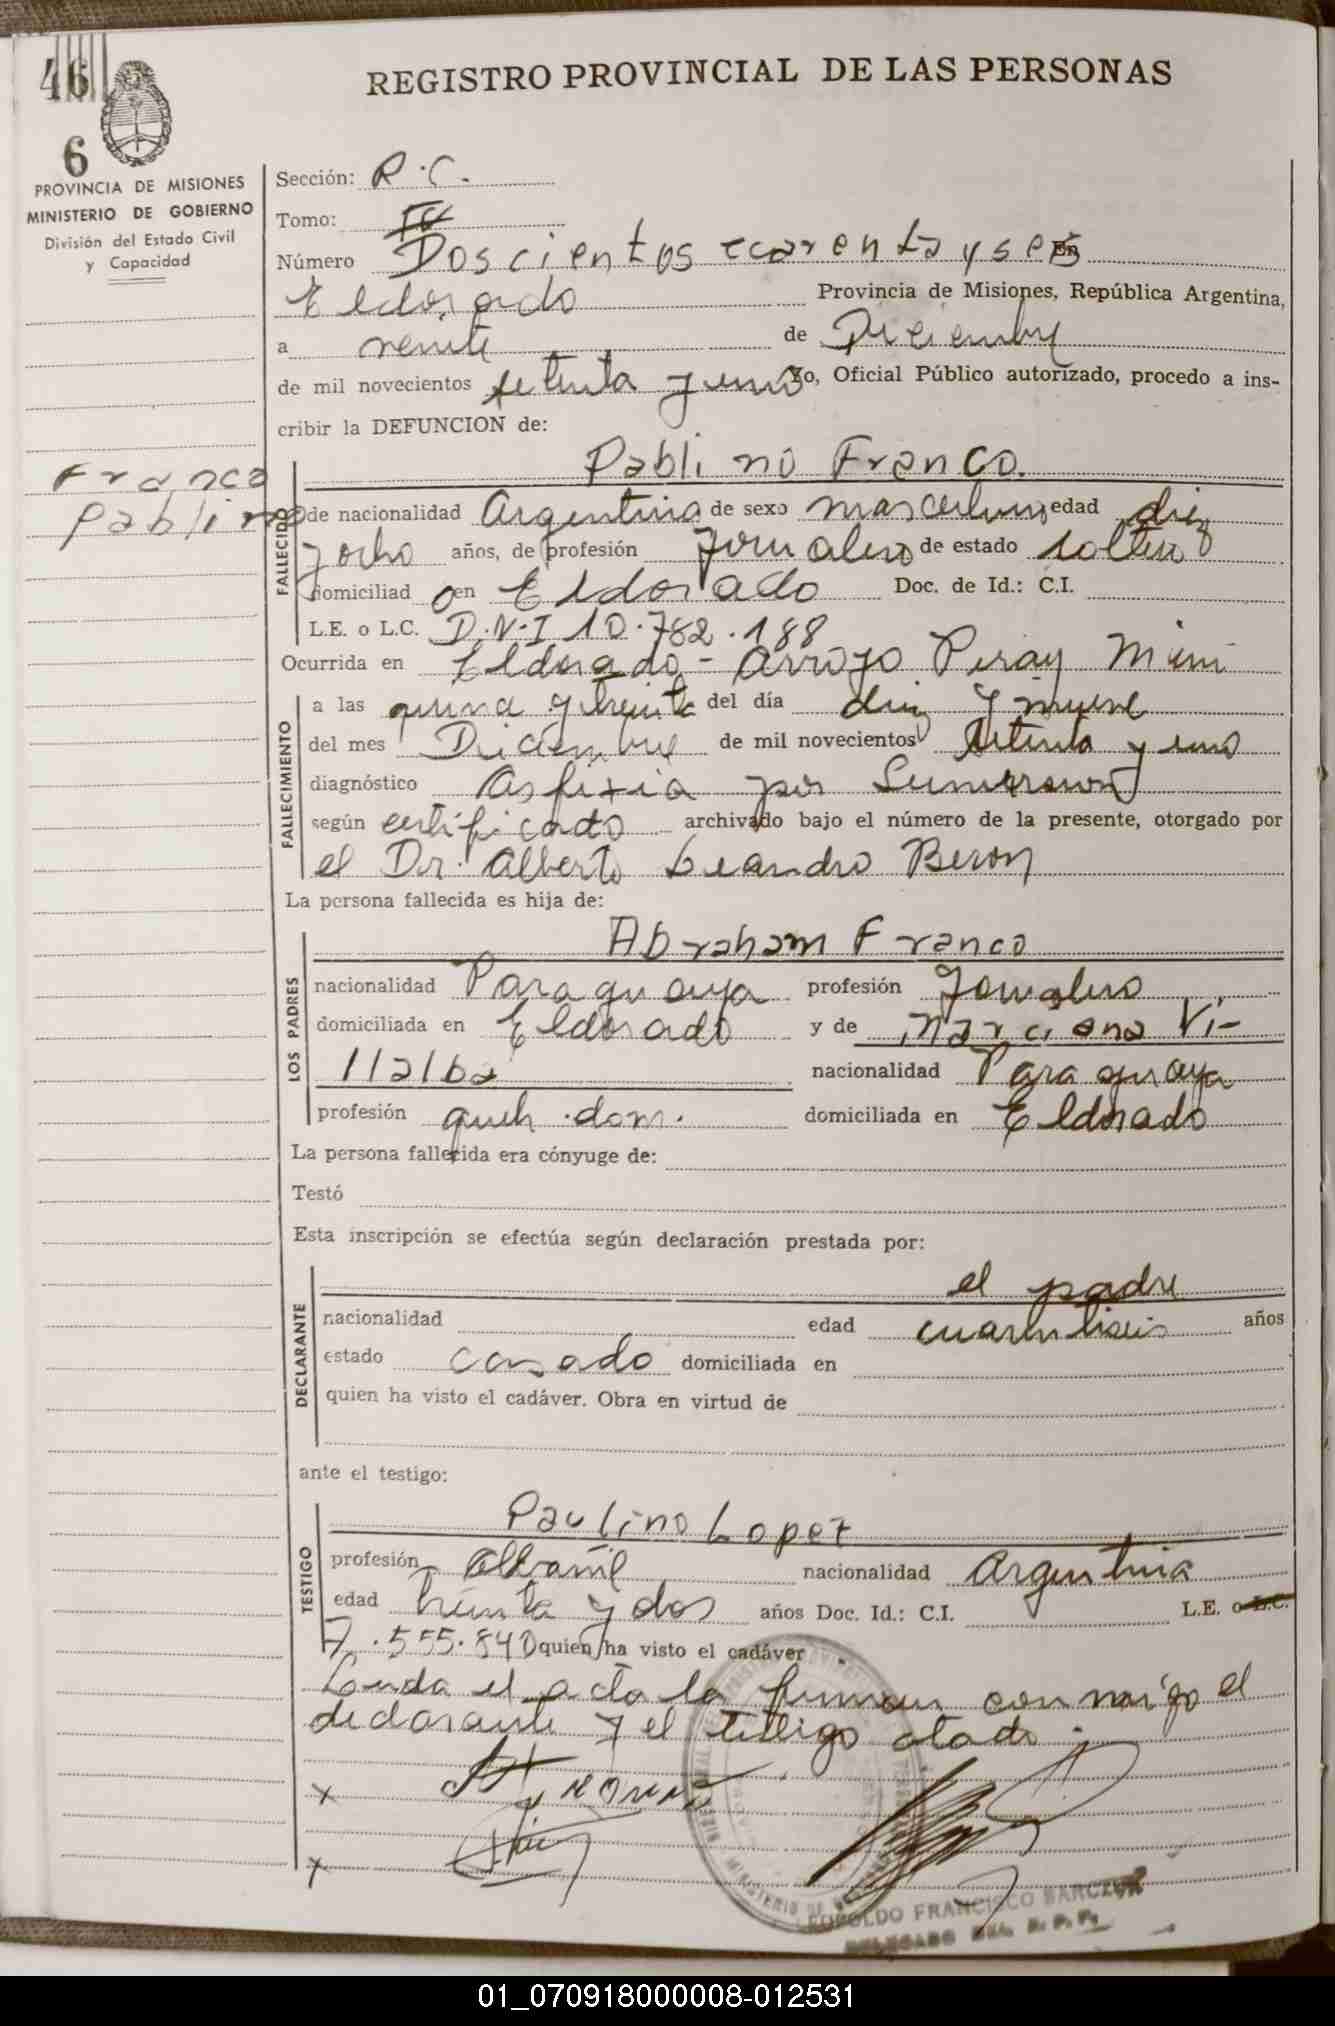 46
6
REGISTRO PROVINCIAL DE LAS PERSONAS
PROVINCIA DE MISIONES
MINISTERIO DE GOBIERNO
División del Estado Civil
y Capacidad
Sección: R.C.
Tomo: IV
Número Doscientos cuarenta y seis En
Eldorado Provincia de Misiones, República Argentina,
a veinte de Diciembre
de mil novecientos setenta y uno Yo, Oficial Público autorizado, procedo a ins-
cribir la DEFUNCION de:
Franco
Pablino
Pablino Franco.
FALLECIDO
de nacionalidad Argentina de sexo masculino edad diez
y ocho años, de profesión Jornalero de estado soltero
domiciliado en Eldorado Doc. de Id.: C.I.
L.E. o L.C. D.N.I 10.782.188
Ocurrida en Eldorado - Arroyo Piray Mini
FALLECIMIENTO
a las y treinta del día diez y nueve
del mes Diciembre de mil novecientos setenta y uno
diagnóstico Asfixia por Sumersion
según certificado archivado bajo el número de la presente, otorgado por
el Dr. Alberto Leandro Beron
La persona fallecida es hija de:
LOS PADRES
Abraham Franco
nacionalidad Paraguaya profesión Jornalero
domiciliada en Eldorado y de Marciana Vi-
llalba nacionalidad Paraguaya
profesión queh. dom. domiciliada en Eldorado
La persona fallecida era cónyuge de:
Testó
Esta inscripción se efectúa según declaración prestada por:
DECLARANTE
el padre
nacionalidad edad cuarentiseis años
estado casado domiciliada en
quien ha visto el cadáver. Obra en virtud de
ante el testigo:
TESTIGO
Paulino Lopez
profesión Albañil nacionalidad Argentina
edad treinta y dos años Doc. Id.: C.I. L.E. o L.C.
7.555.840 quien ha visto el cadáver
Leida el acta la firman conmigo el
declarante y el testigo citado.
x
x
LEOPOLDO FRANCISCO BARCZUK
DELEGADO DEL R. P. P.
01_070918000008-012531